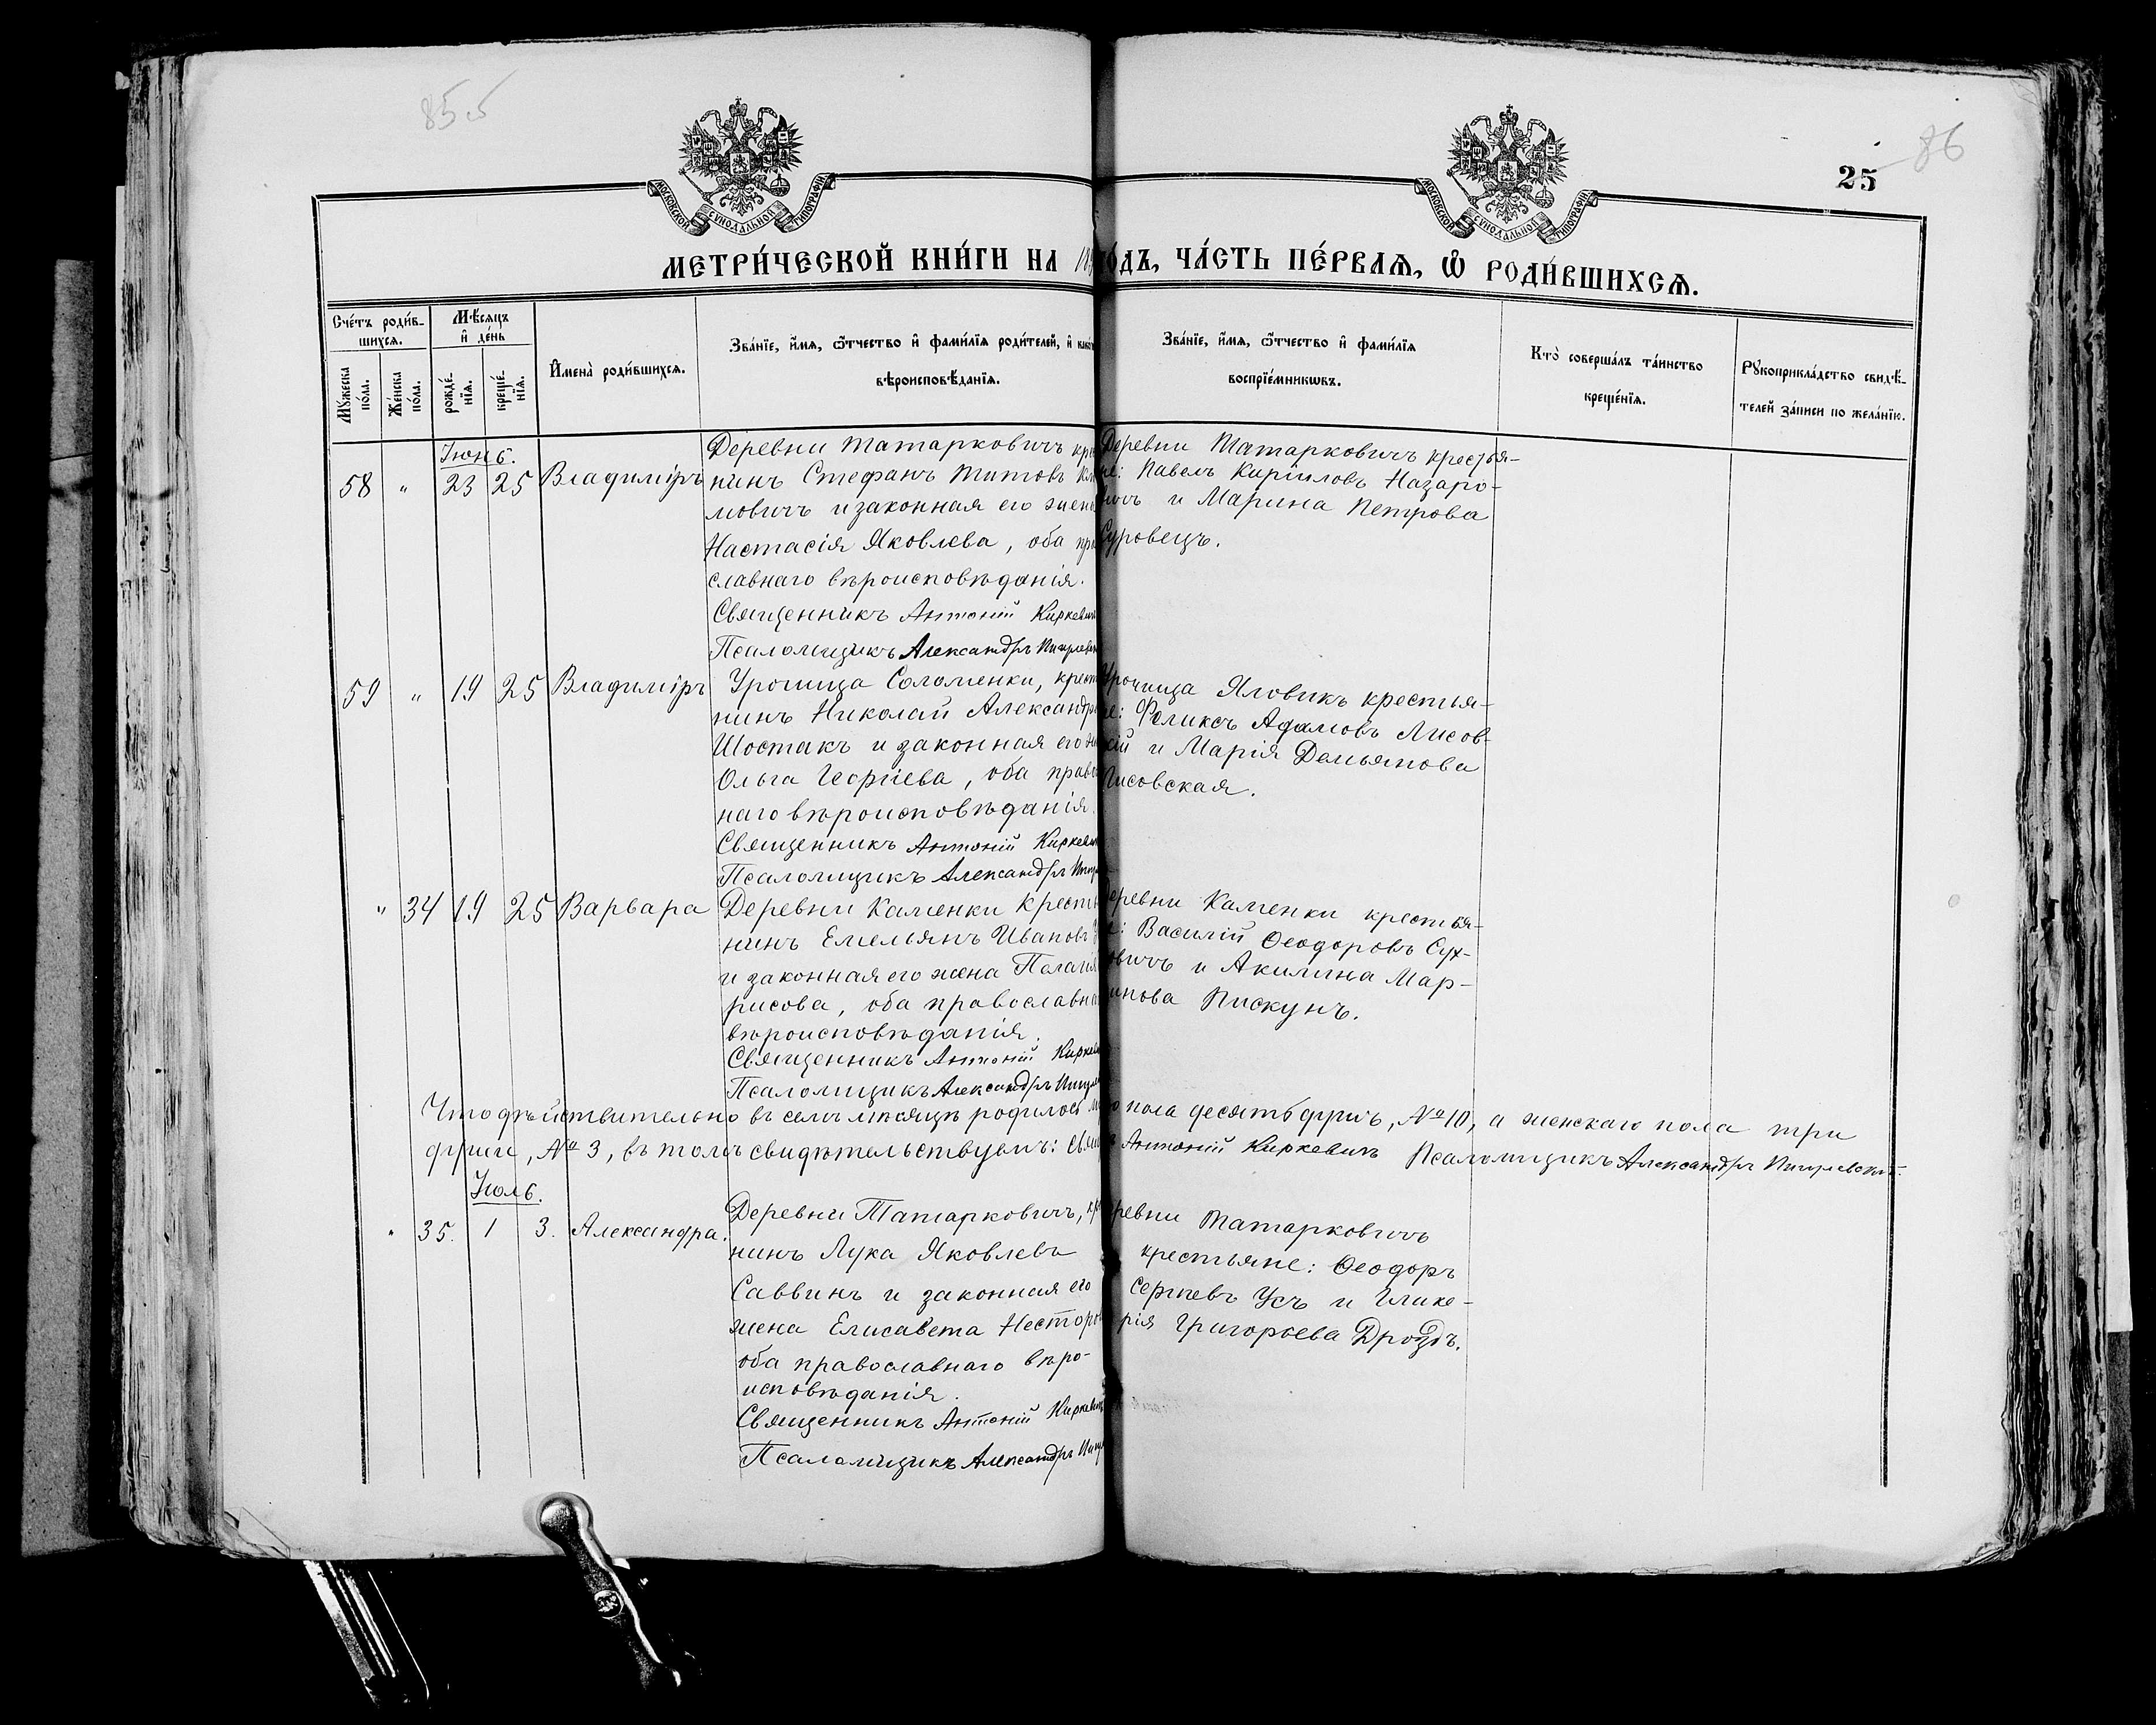 85об
МОСКОВСКОЙ СУНОДАЛЬНОЙ ТИПОГРАФІИ
МОСКОВСКОЙ СУНОДАЛЬНОЙ ТИПОГРАФІИ
25
86
МЕТРИ́ЧЕСКОЙ КНИ́ГИ НА 18 го́дъ, ЧА́СТЬ ПЕ́РВАѦ, Ѡ҆ РОДИ́ВШИХСѦ.
Сче́тъ роди́вшихся.
Мꙋ́жеска по́ла.
Же́нска по́ла.
Мѣ́сяцъ и҆ де́нь
рожде́нїѧ.
креще́нїѧ.
И҆мена̀ роди́вшихсѧ.
Зва́нїе, и҆́мѧ, ѻ҆́тчество и҆ фами́лїѧ роди́телей, и҆
вѣроисповѣ́данїѧ.
Зва́нїе, и҆́мѧ, ѻ҆́тчество и҆ фами́лїѧ
воспрїе́мникѡвъ.
Кто̀ соверша́лъ та́инство
креще́нїѧ.
Рꙋкоприкла́дство свидѣ́-
телей за́писи по жела́нїю.
Іюнь.
58 " 23 25 Владиміръ
Деревни Татарковичъ кре
нинъ Стефанъ Титовъ Кл
мовичъ и законная его жена
Настасія Яковлева, оба пра
славнаго вѣроисповѣданія.
Священникъ Антоній Киркевичъ
Псаломщикъ Александръ
Деревни Татарковичъ крестья-
не: Павелъ Кирилловъ Назаро-
вичъ и Марина Петрова
Суровецъ.
59 " 19 25 Владиміръ
Урочища Соломенки, крест
нинъ Николай Александро
Шостакъ и законная его
Ольга Георгіева, оба право
наго вѣроисповѣданія.
Священникъ Антоній Киркевичъ
Псаломщикъ Александръ
Урочища Яловикъ крестья-
не: Феликсъ Адамовъ Лисов-
скій и Марія Демьянова
Лисовская.
" 34 19 25 Варвара
Деревни Каменки кресть
нинъ Емельянъ Ивановъ
и законная его жена Пелагія
рисова, оба православна
вѣроисповѣданія.
Священникъ Антоній Киркев
Псаломщикъ Александръ
Деревни Каменки крестья-
не: Василій Ѳеодоровъ Сух-
овичъ и Акилина Мар-
тинова Пискунъ.
Что дѣйствительно въ семъ мѣсяцѣ родилось пола десять душъ, № 10, а женскаго пола три
души, № 3, въ томъ свидѣтельствуемъ: Антоній Киркевичъ Псаломщикъ Александръ
Іюль.
" 35. 1 3. Александра.
Деревни Татарковичъ, кре
нинъ Лука Яковлевъ
Саввинъ и законная его
жена Елисавета Нестеров
оба православнаго вѣро-
исповѣданія.
Священникъ Антоній Киркевичъ
Псаломщикъ Александръ
Деревни Татарковичъ
крестьяне: Ѳеодоръ
Сергѣевъ Усъ и Глике-
рія Григорьева Дроздъ.